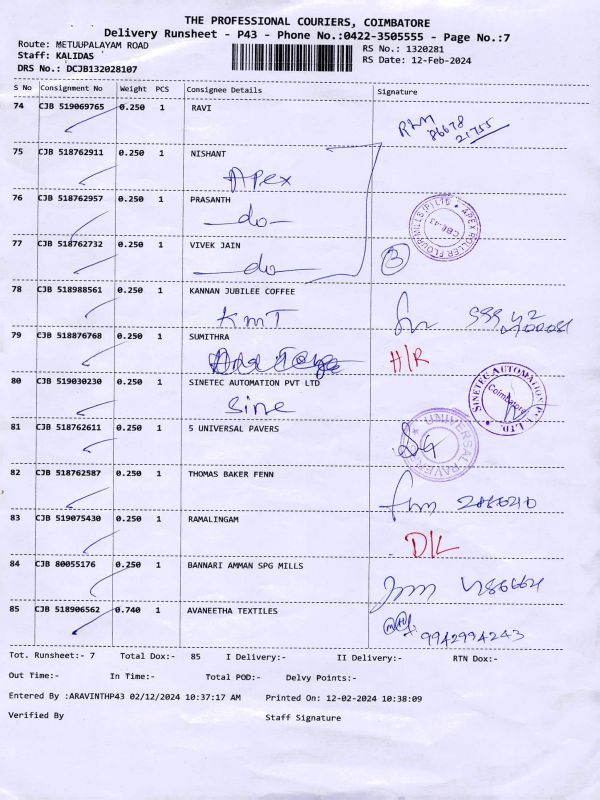 THE PROFESSIONAL COURIERS, COIMBATORE
Delivery Runsheet - P43 - Phone No.:0422-3505555 - Page No.:7
Route: METUUPALAYAM ROAD RS No.: 1320281
Staff: KALIDAS RS Date: 12-Feb-2024
DRS No.: DCJB132028107
S No Consignment No Weight PCS Consignee Details Signature
74 CJB 519069765 0.250 1 RAVI
86678
21755
75 CJB 518762911 0.250 1 NISHANT
Apex
76 CJB 518762957 0.250 1 PRASANTH
-do-
APEX ROLLER FLOUR MILLS (P) LTD
CBE-43
77 CJB 518762732 0.250 1 VIVEK JAIN
-do- 3
78 CJB 518988561 0.250 1 KANNAN JUBILEE COFFEE
KMT
79 CJB 518876768 0.250 1 SUMITHRA
H/R
80 CJB 519030230 0.250 1 SINETEC AUTOMATION PVT LTD
Sine
SINETEC AUTOMATION PVT. LTD.
Coimbatore
81 CJB 518762611 0.250 1 5 UNIVERSAL PAVERS
UNIVERSAL PAVERS
82 CJB 518762587 0.250 1 THOMAS BAKER FENN
83 CJB 519075430 0.250 1 RAMALINGAM
D/L
84 CJB 80055176 0.250 1 BANNARI AMMAN SPG MILLS
85 CJB 518906562 0.740 1 AVANEETHA TEXTILES
9942994243
Tot. Runsheet:- 7 Total Dox:- 85 I Delivery:- II Delivery:- RTN Dox:-
Out Time:- In Time:- Total POD:- Delvy Points:-
Entered By :ARAVINTHP43 02/12/2024 10:37:17 AM Printed On: 12-02-2024 10:38:09
Verified By Staff Signature